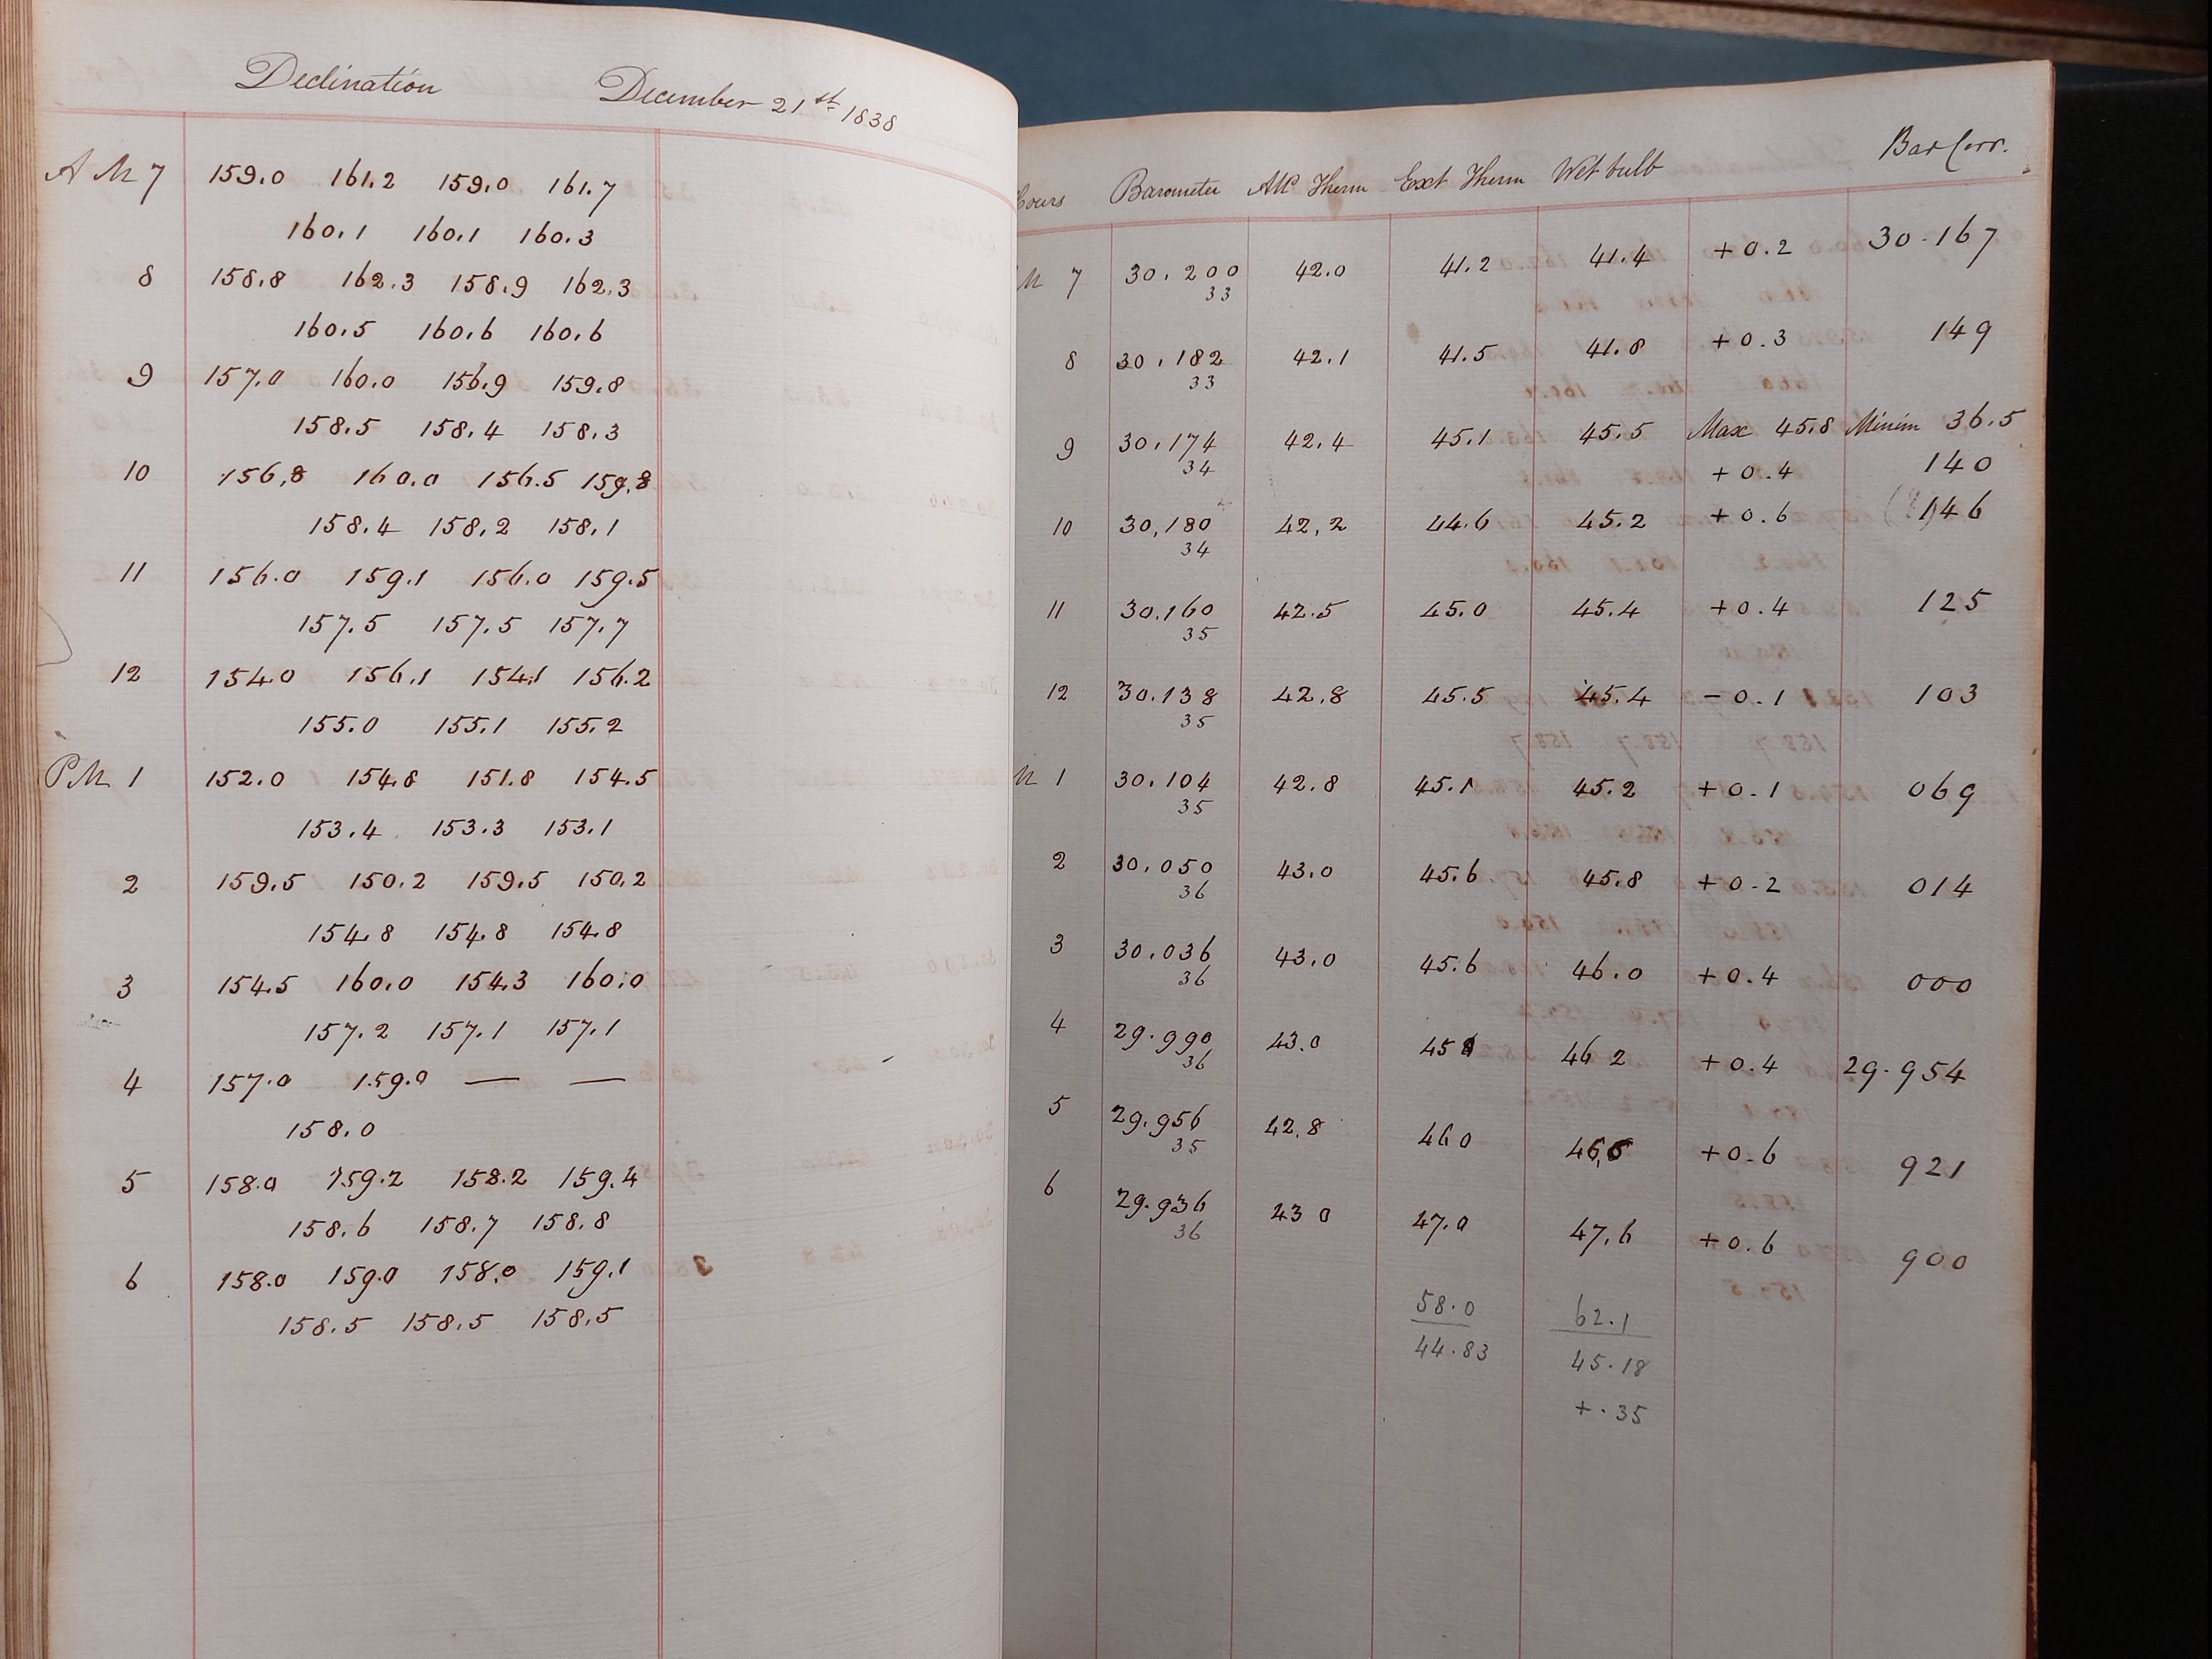 Declination December 21st 1838
A M 7 159.0 161.2 159.0 161.7
160.1 160.1 160.3
8 158.8 162.3 158.9 162.3
160.5 160.6 160.6
9 157.0 160.0 156.9 159.8
158.5 158.4 158.3
10 156.8 160.0 156.5 159.8
158.4 158.2 158.1
11 156.0 159.1 156.0 159.5
157.5 157.5 157.7
12 154.0 156.1 154.1 156.2
155.0 155.1 155.2
P M 1 152.0 154.8 151.8 154.5
153.4 153.3 153.1
2 159.5 150.2 159.5 150.2
154.8 154.8 154.8
3 154.5 160.0 154.3 160.0
157.2 157.1 157.1
4 157.0 159.0 — —
158.0
5 158.0 159.2 158.2 159.4
158.6 158.7 158.8
6 158.0 159.0 158.0 159.1
158.5 158.5 158.5
Hours Barometer Att Therm Ext Therm Wet bulb Bar Corr.
M 7 30.200 42.0 41.2 41.4 +0.2 30.167
33
8 30.182 42.1 41.5 41.8 +0.3 149
33
9 30.174 42.4 45.1 45.5 Max 45.8 Minim 36.5
34 +0.4 140
10 30,180 42,2 44.6 45.2 +0.6 146
34
11 30.160 42.5 45.0 45.4 +0.4 125
35
12 30.138 42.8 45.5 45.4 -0.1 103
35
M 1 30.104 42.8 45.1 45.2 +0.1 069
35
2 30.050 43.0 45.6 45.8 +0.2 014
36
3 30.036 43.0 45.6 46.0 +0.4 000
36
4 29.990 43.0 45 8 46 2 +0.4 29.954
36
5 29.956 42.8 46 0 46,6 +0.6 921
35
6 29.936 43 0 47.0 47.6 +0.6 900
36
58.0 62.1
44.83 45.18
+.35